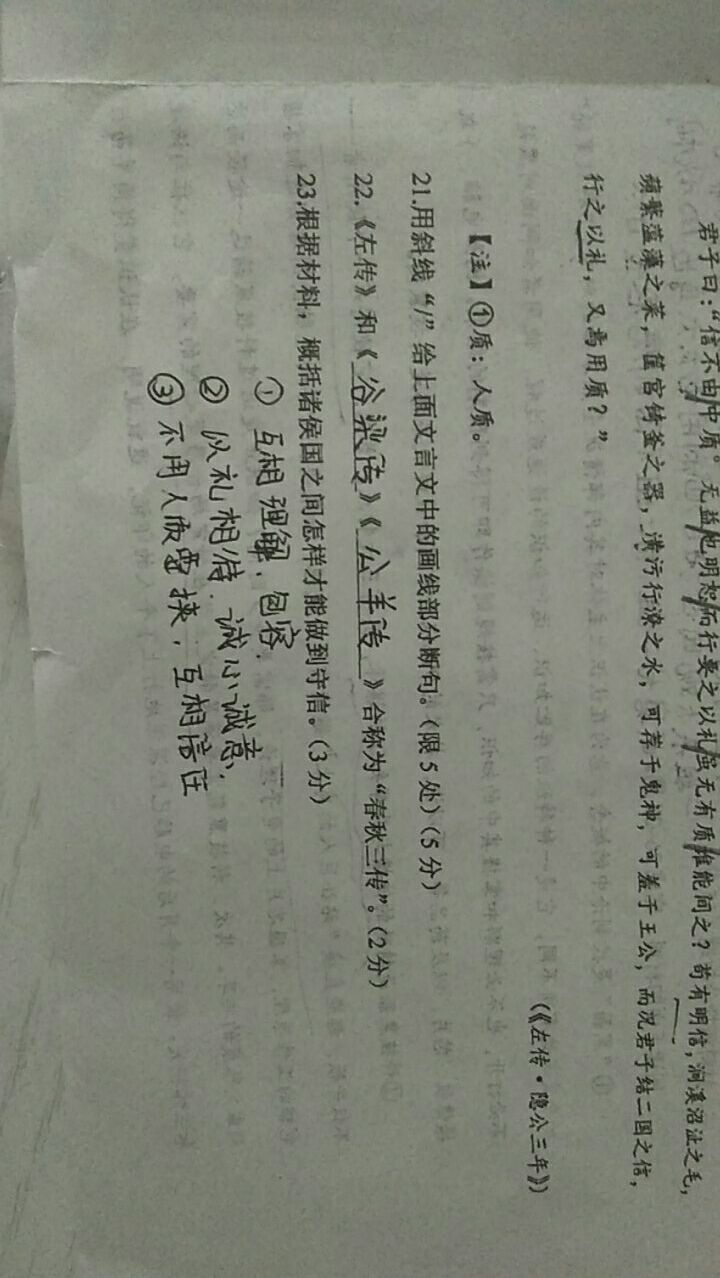 君子曰：“信不由中，质①无益也明恕而行要之以礼虽无有质谁能间之？苟有明信，涧溪沼沚之毛，
蘋蘩蕰藻之菜，筐筥锜釜之器，潢污行潦之水，可荐于鬼神，可羞于王公，而况君子结二国之信，
行之以礼，又焉用质？”
（《左传·隐公三年》）
【注】①质：人质。
21.用斜线“/”给上面文言文中的画线部分断句。（限5处）（5分）
22.《左传》和《谷梁传》《公羊传》合称为“春秋三传”。（2分）
23.根据材料，概括诸侯国之间怎样才能做到守信。（3分）
① 互相理解、包容.
② 以礼相待.诚心诚意.
③ 不用人质要挟.互相信任